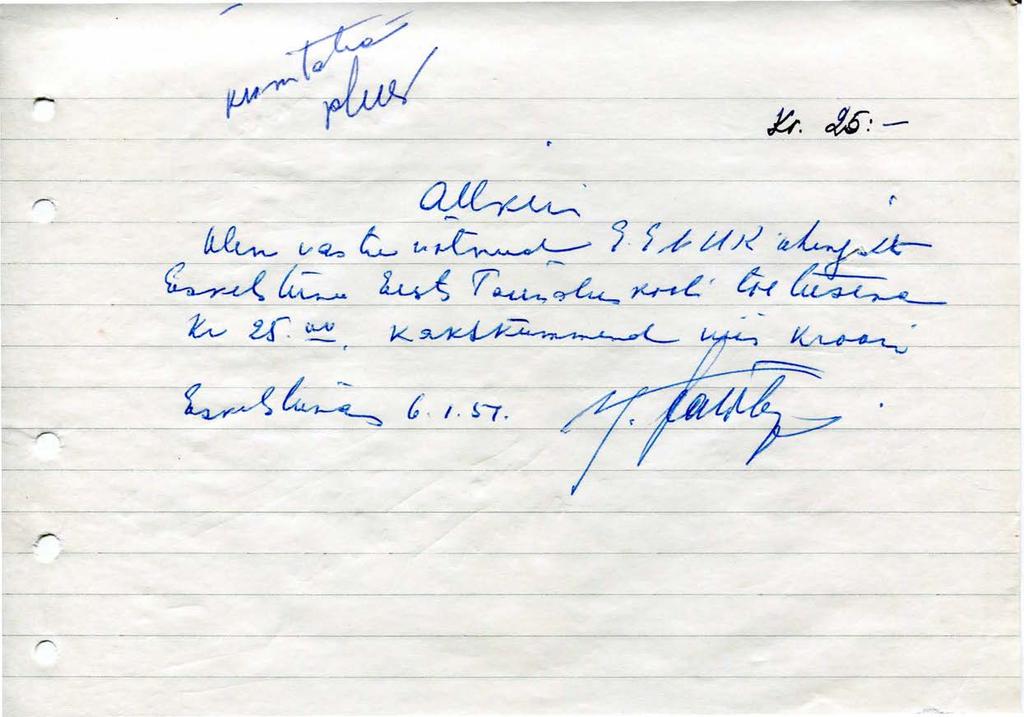 Kr. 25:-
Allkiri
Olen vastu võtnud E.E. ühingult
Eskilstuna Eesti Täiendus kooli toetusena
Kr 25.00, kakskümmend viis krooni
Eskilstunas 6.1.57.